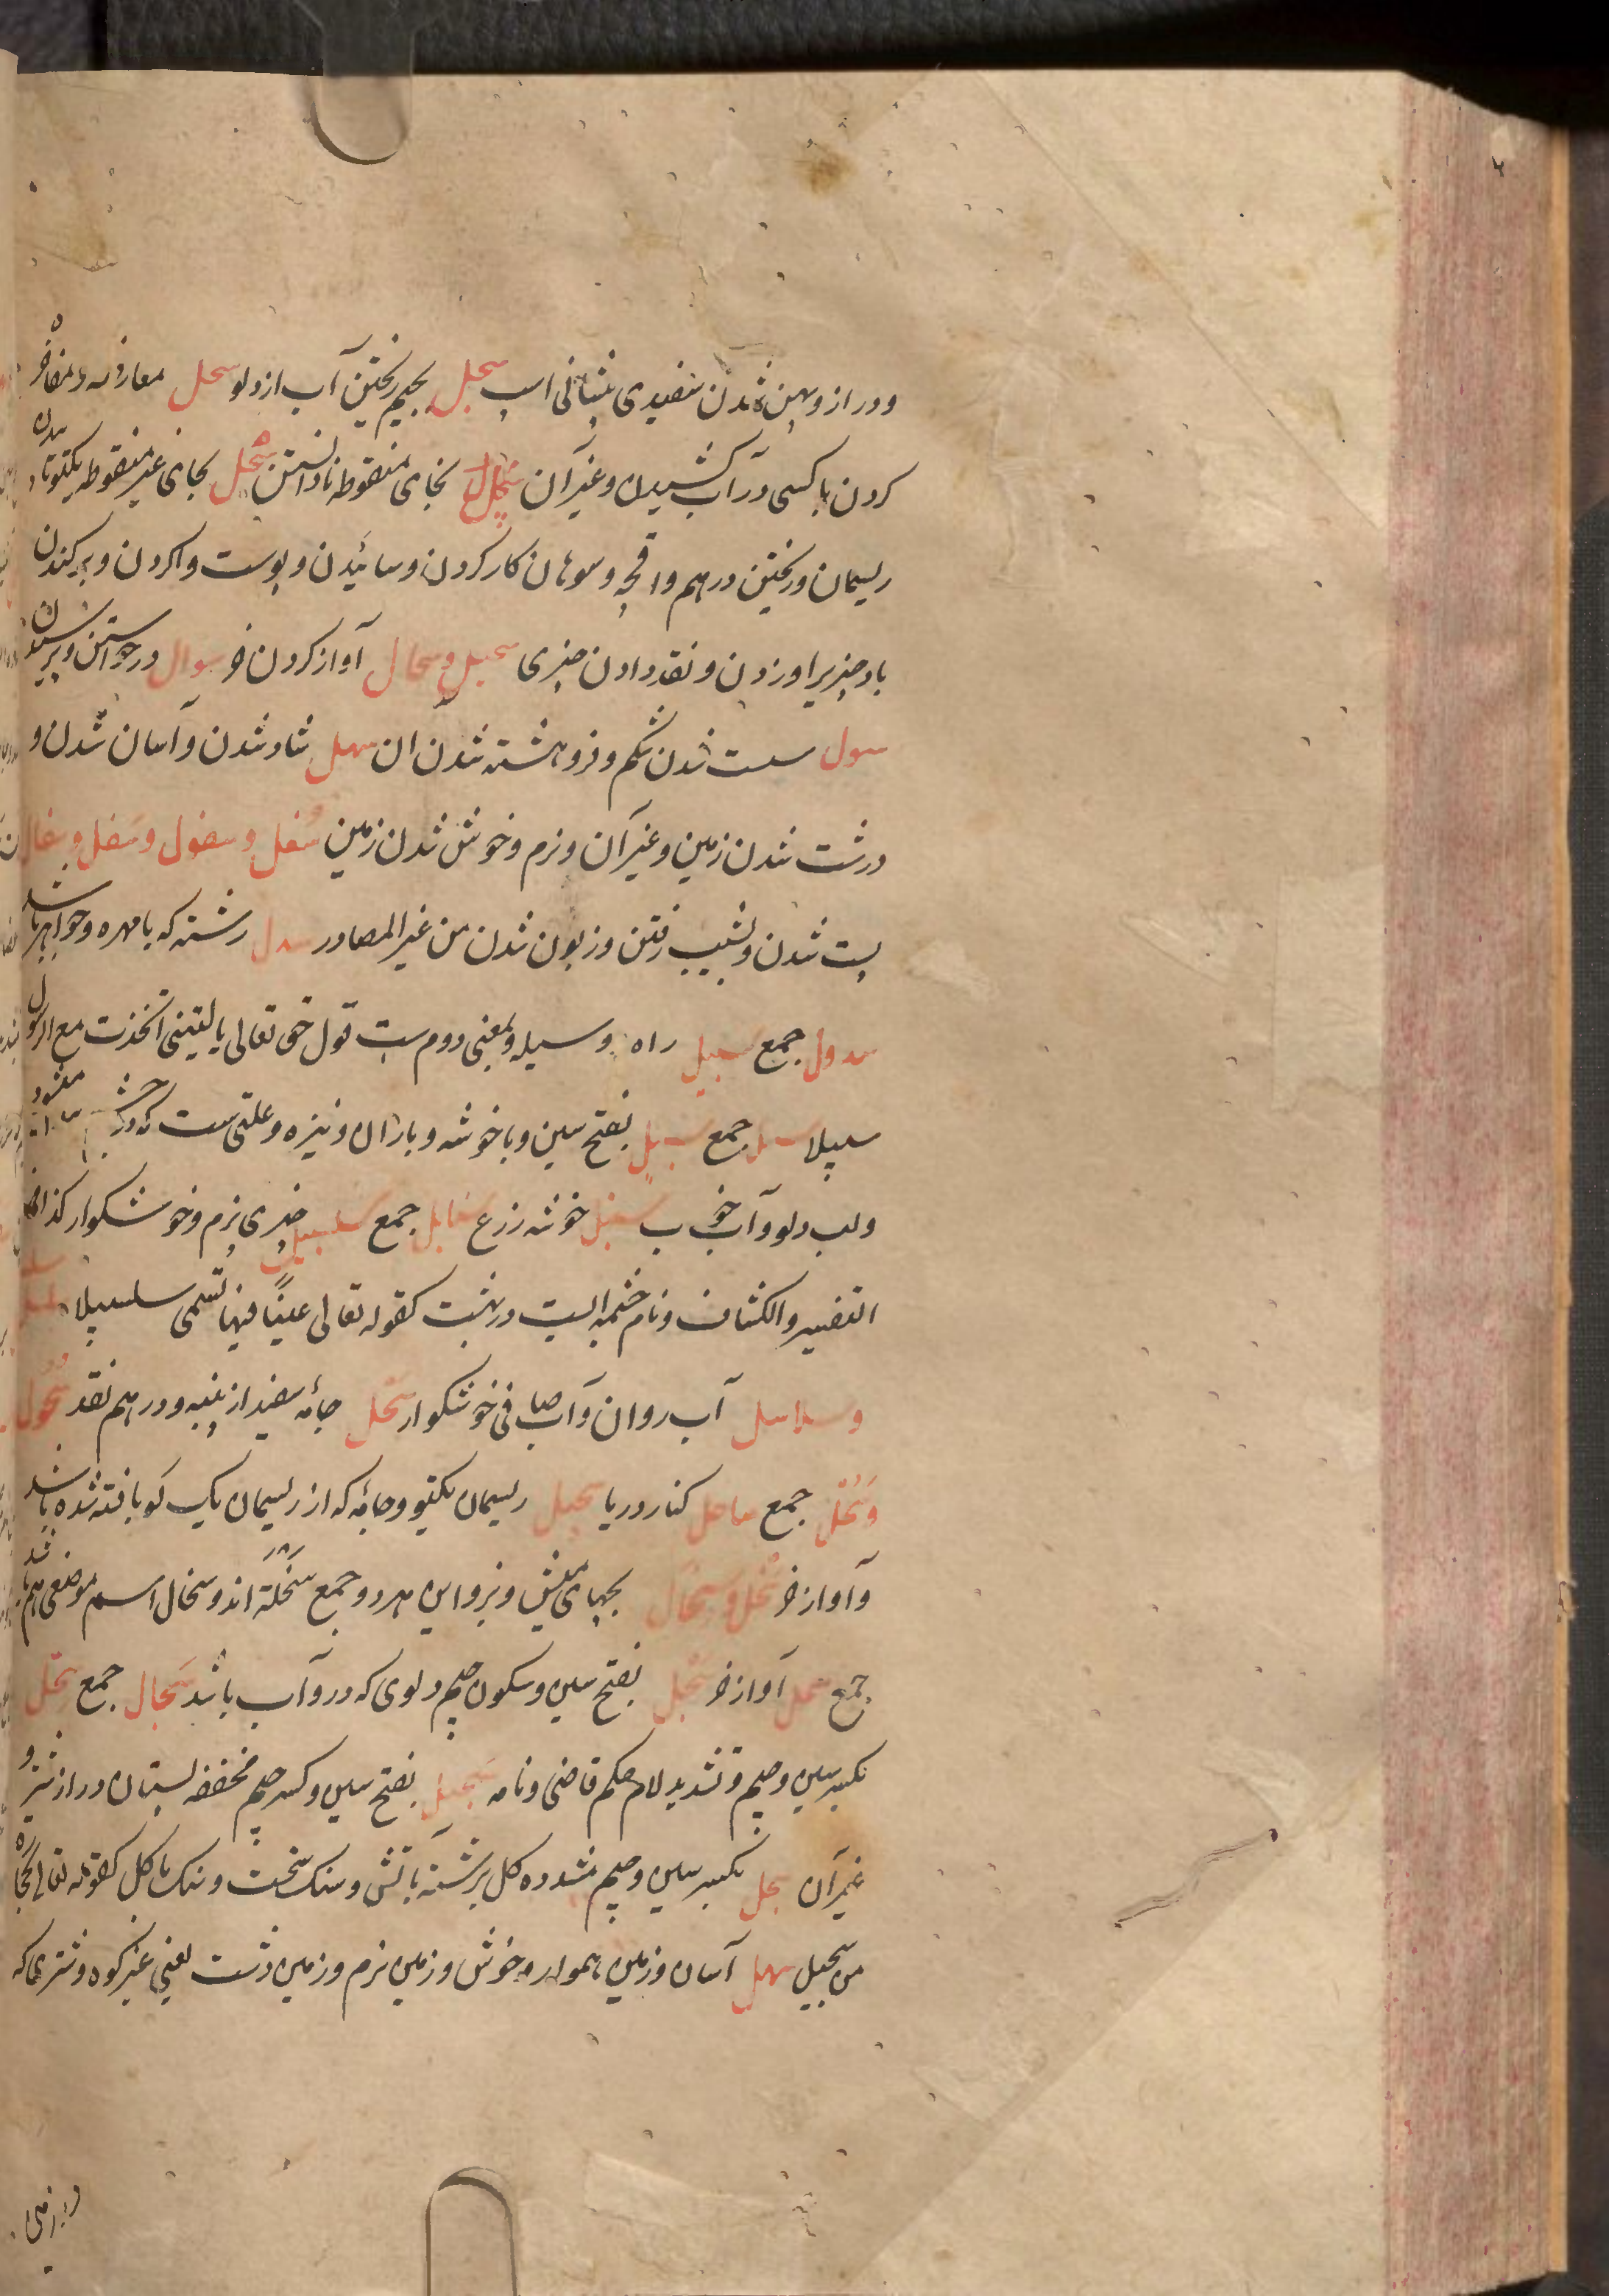 و دراز و پهن شدن سفیدی پیشانی اسپ سجل بجیم ریختن آب از دلو سجل معارضه و مفاخره
کردن با کسی در آب کشیدن و غیر آن سخل بخای منقوطه نادانستن سحل بحای غیر منقوطه یکتو تابیدن
ریسمان و ریختن درهم واقچه و سوهان کار کردن و سائیدن و پوست وا کردن و برکندن
باد چیزیرا و زدن و نقد دادن چیزی سحیل و سحال آواز کردن خر سوال درخواستن و پرسیدن
سول سست شدن شکم و فروهشته شدن ان سهل شاد شدن و آسان شدن و
درشت شدن زمین و غیر آن و نرم و خوش شدن زمین سفل و سفول و سفل و سفال
پست شدن و نشیب رفتن و زبون شدن من غیر المصادر سدل رشته که با مهره و جواهر باشد
سدول جمع سبیل راه و وسیله و بمعنی دوم ست قول حق تعالی یا لیتنی اتخذت مع الرسول
سبیلا سبل جمع سبل بفتح سین و با خوشه و باران و نیزه و علتی ست که در چشم
و لب دلو و آب سنبل خوشه زرع سنابل جمع سلسبیل چیزی نرم و خوشکوار کذا فی
التفسیر والکشاف و نام چشمه ایست در بهشت کقوله تعالی عینًا فیها تسمی سلسبیلا سلسل
و سلاسل آب روان و آب صافی خوشکوار سحل جامهٔ سفید از پنبه و درهم نقد سحول
وَسُحُل جمع ساحل کنار دریا سحیل ریسمان یکتو و جامهٔ که از ریسمان یک تو بافته شده باشد
و آواز خر سخل و سخال بچهای میش و بز و این هر دو جمع سَخْلَة اند و سخال اسم موضعی هم باشد
جمع سحل آواز خر سجل بفتح سین و سکون جیم دلوی که در و آب باشد سجال جمع سجل
بکسر سین و جیم و تشدید لام حکم قاضی و نامه سجیل بفتح سین و کسر جیم مخففه پستان دراز شتر و
غیر آن سجل بکسر سین و جیم مشدده کل برشته بآتش و سنک سخت و سنک با کل کقوله تعالی بحجارة
من سجیل سهل آسان و زمین هموار و خوش و زمین نرم و زمین دشت یعنی غیر کوه و شتری که